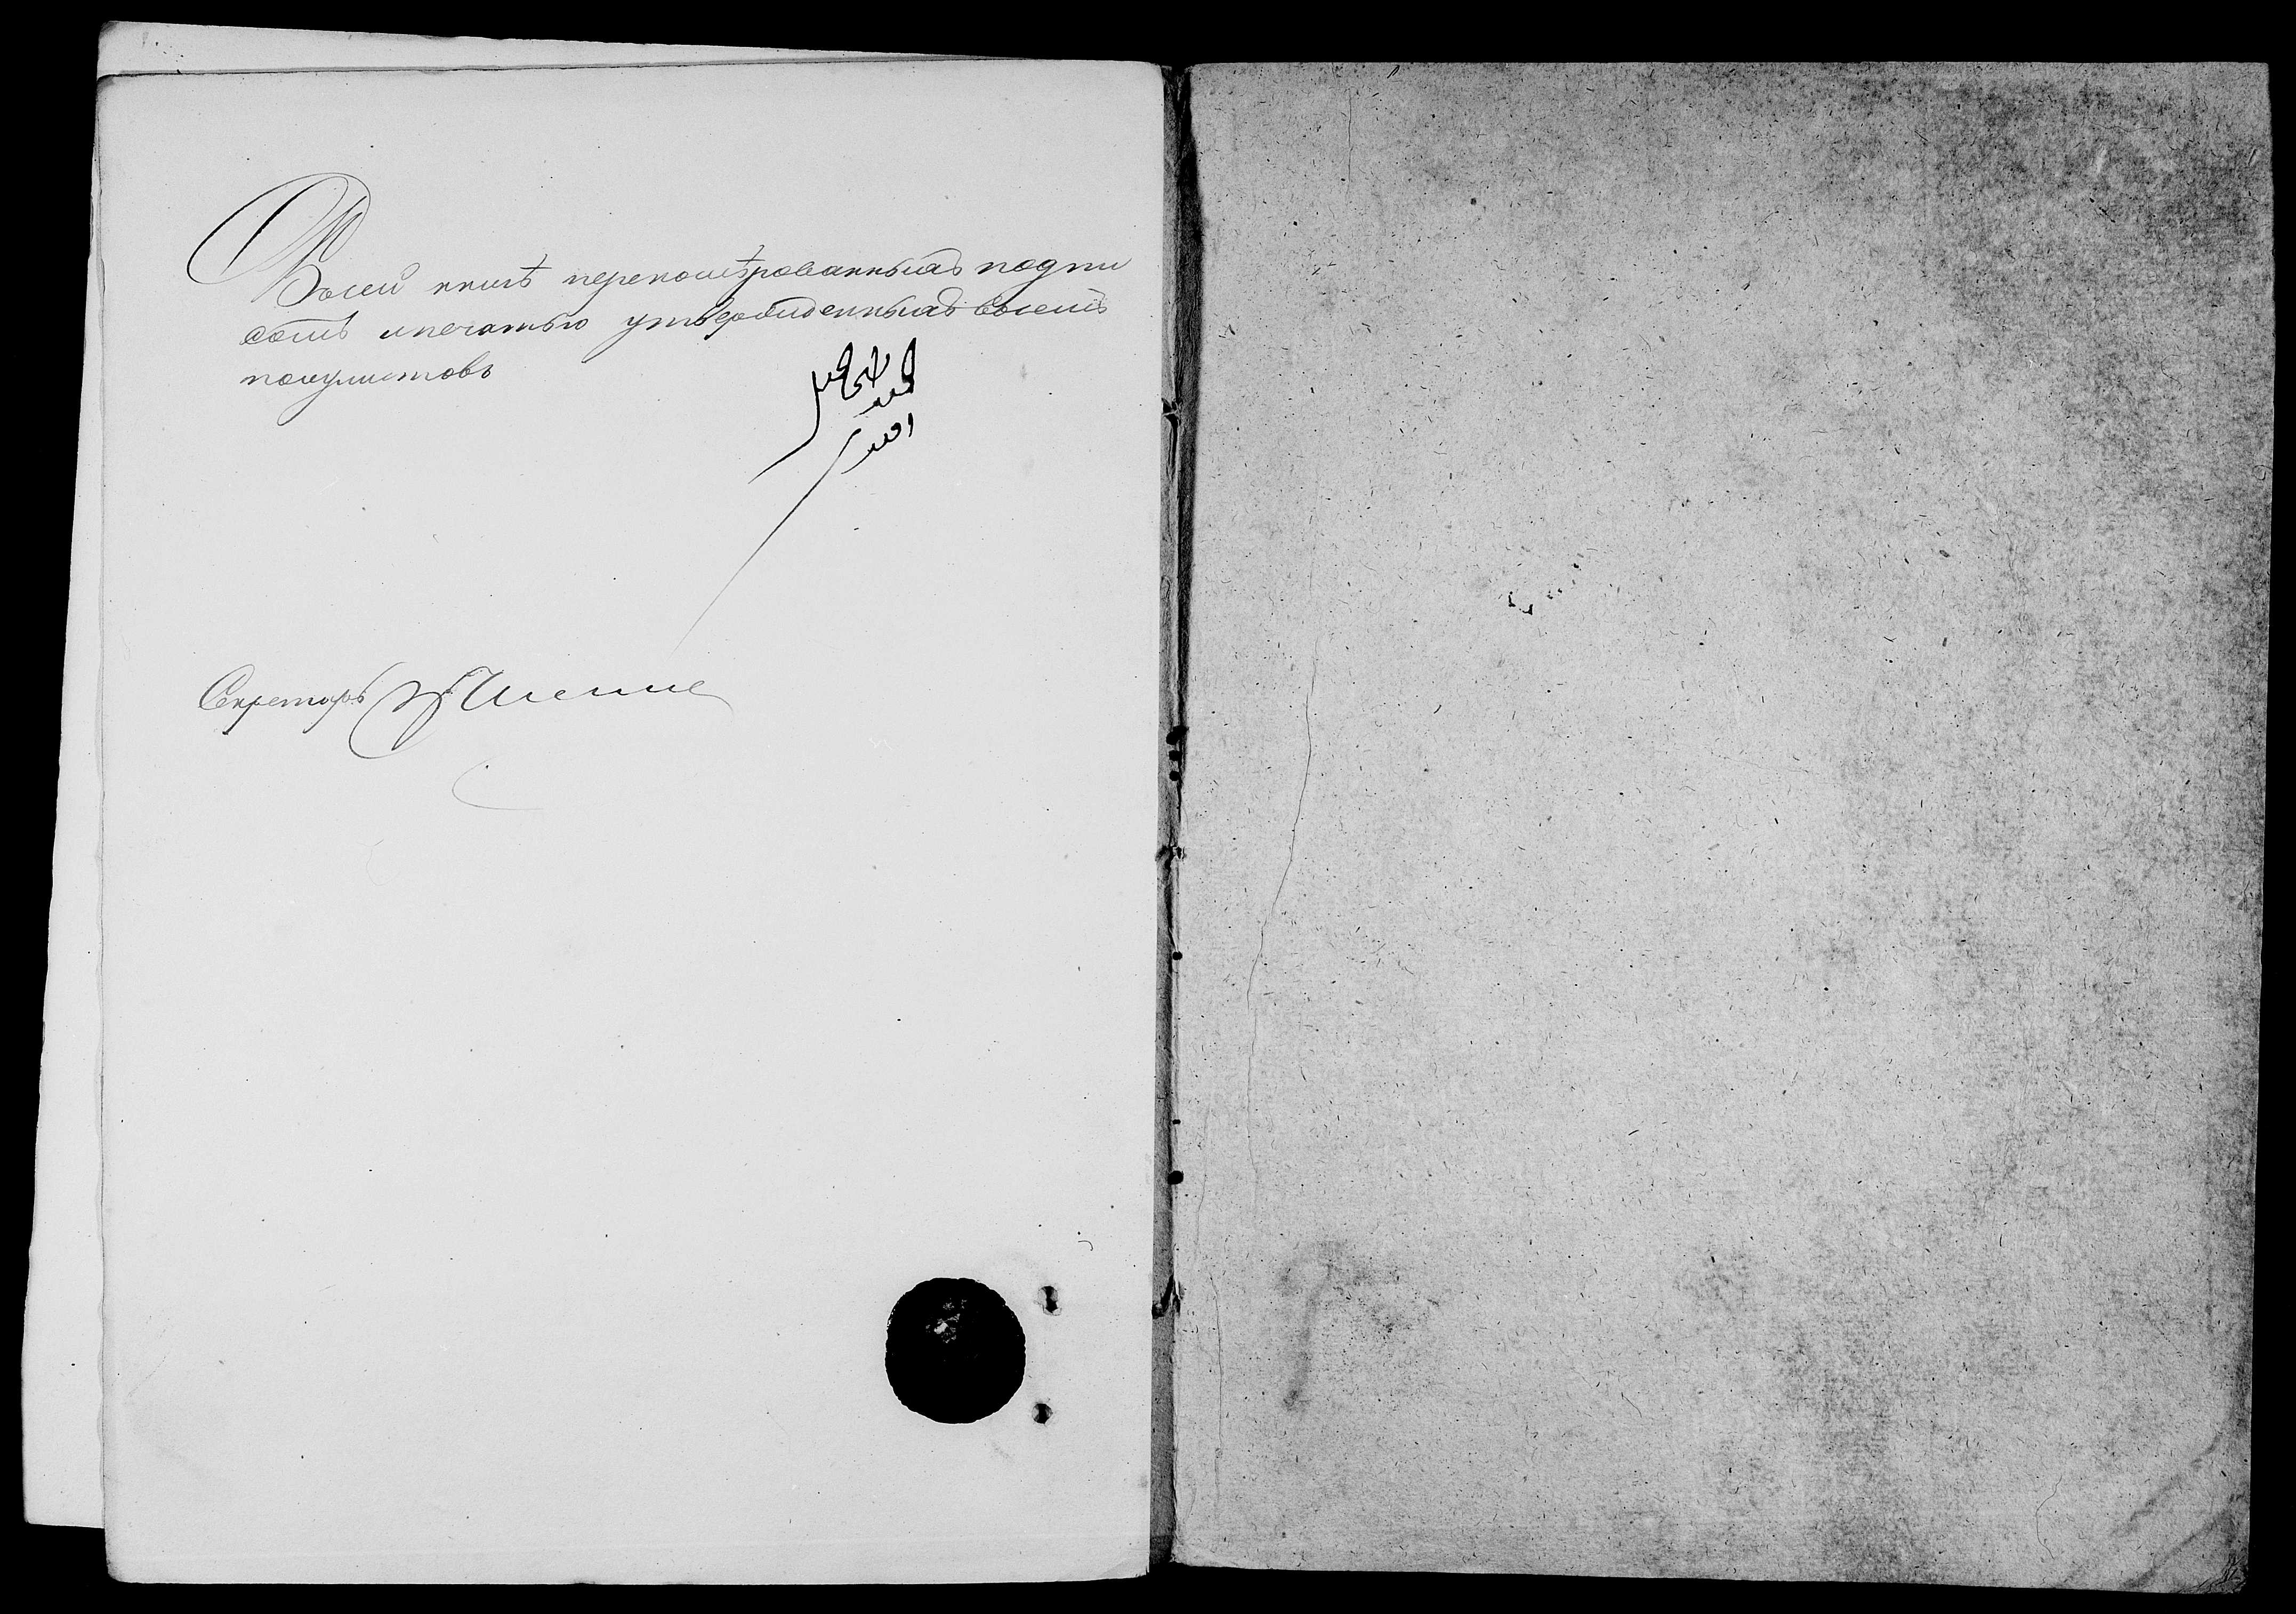 Въ сей книгѣ переномѣрованныхъ подпи
сомъ и печатью утвержденныхъ восемь
полулистовъ
Секретарь